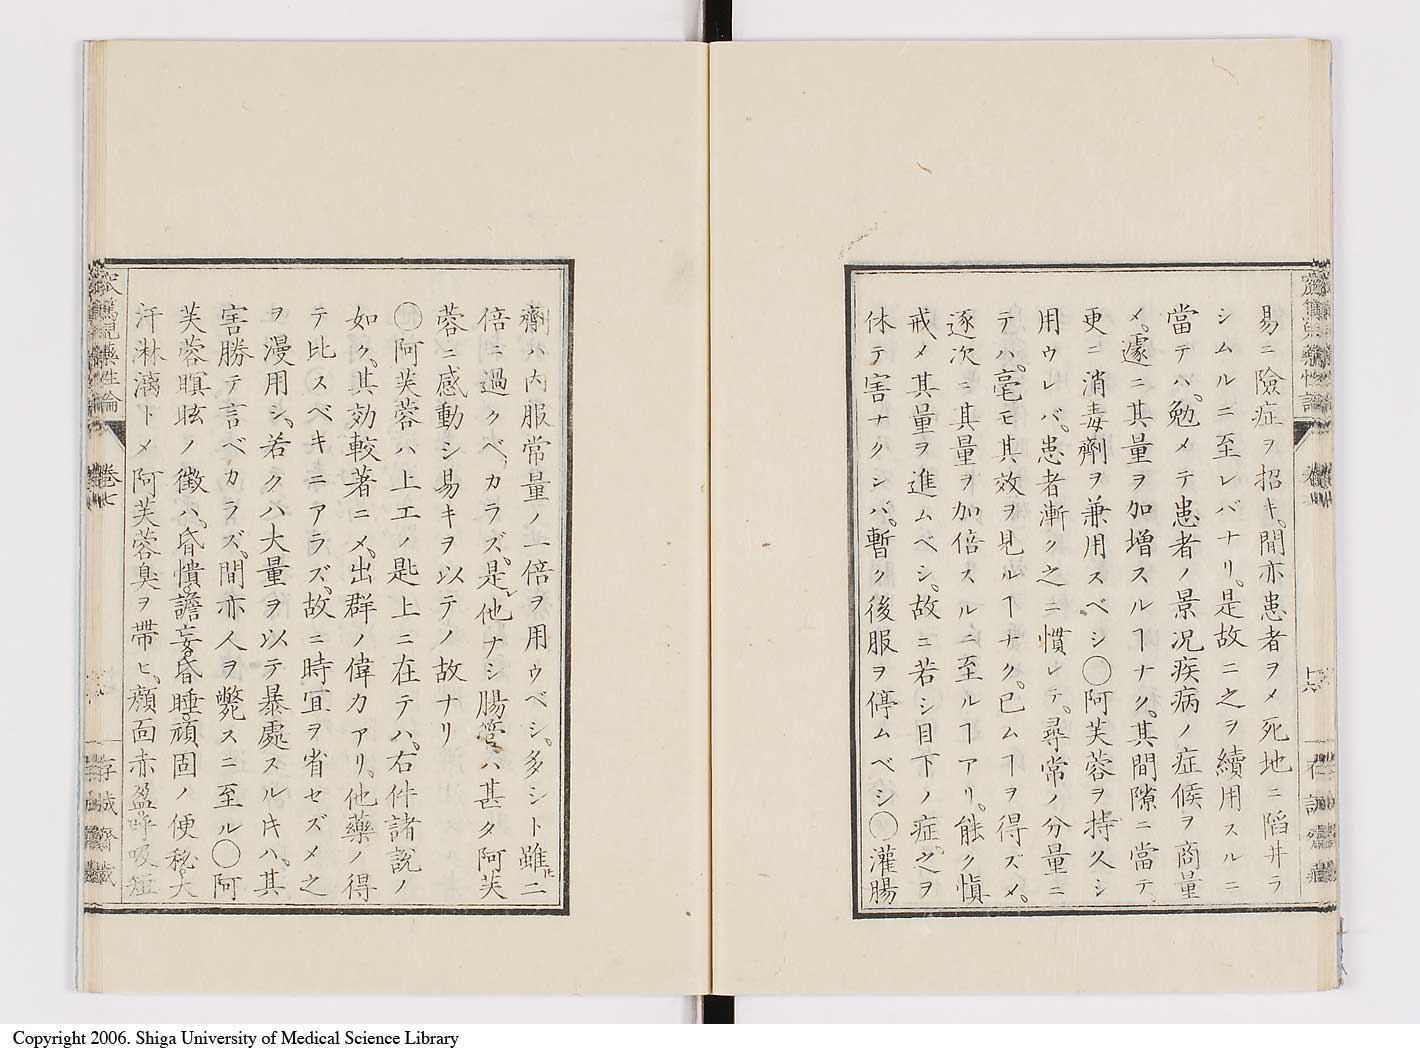 易ニ險症ヲ招キ、間亦患者ヲ乄死地ニ陷井ラ
シムルニ至レバナリ、是故ニ之ヲ續用スルニ
當テハ、勉メテ患者ノ景况疾病ノ症候ヲ商量
乄、遽ニ其量ヲ加增スルヿナク、其間隙ニ當テ、
更ニ消毒劑ヲ兼用スベシ〇阿芙蓉ヲ持久シ
用ウレバ、患者漸ク之ニ慣レテ、尋常ノ分量ニ
テハ、毫モ其效ヲ見ルヿナク、已ムヿヲ得ズ乄、
逐次ニ其量ヲ加倍スルニ至ルヿアリ、能ク愼
戒メ其量ヲ進ムベシ、故ニ若シ目下ノ症、之ヲ
休テ害ナクンバ、暫ク後服ヲ停ムベシ〇灌腸
十六
劑ハ内服常量ノ一倍ヲ用ウベシ、多シト雖𪜈二
倍ニ過クベカラズ、是レ他ナシ腸管ハ甚タ阿芙
蓉ニ感動シ易キヲ以テノ故ナリ
〇阿芙蓉ハ上工ノ匙上ニ在テハ、右件諸說ノ
如ク、其効較著ニ乄、出群ノ偉力アリ、他藥ノ得
テ比スベキニアラズ、故ニ時宜ヲ省セズ乄之
ヲ漫用シ、若クハ大量ヲ以テ暴處スル𪜈ハ、其
害勝テ言ベカラズ、間亦人ヲ斃スニ至ル〇阿
芙蓉瞑眩ノ徵ハ、昏憒、譫妄、昏睡、頑固ノ便秘、大
汗淋漓ト乄阿芙蓉臭ヲ帶ヒ、顏面赤盈、呼吸短
藥性論
卷七
Copyright 2006. Shiga University of Medical Science Library